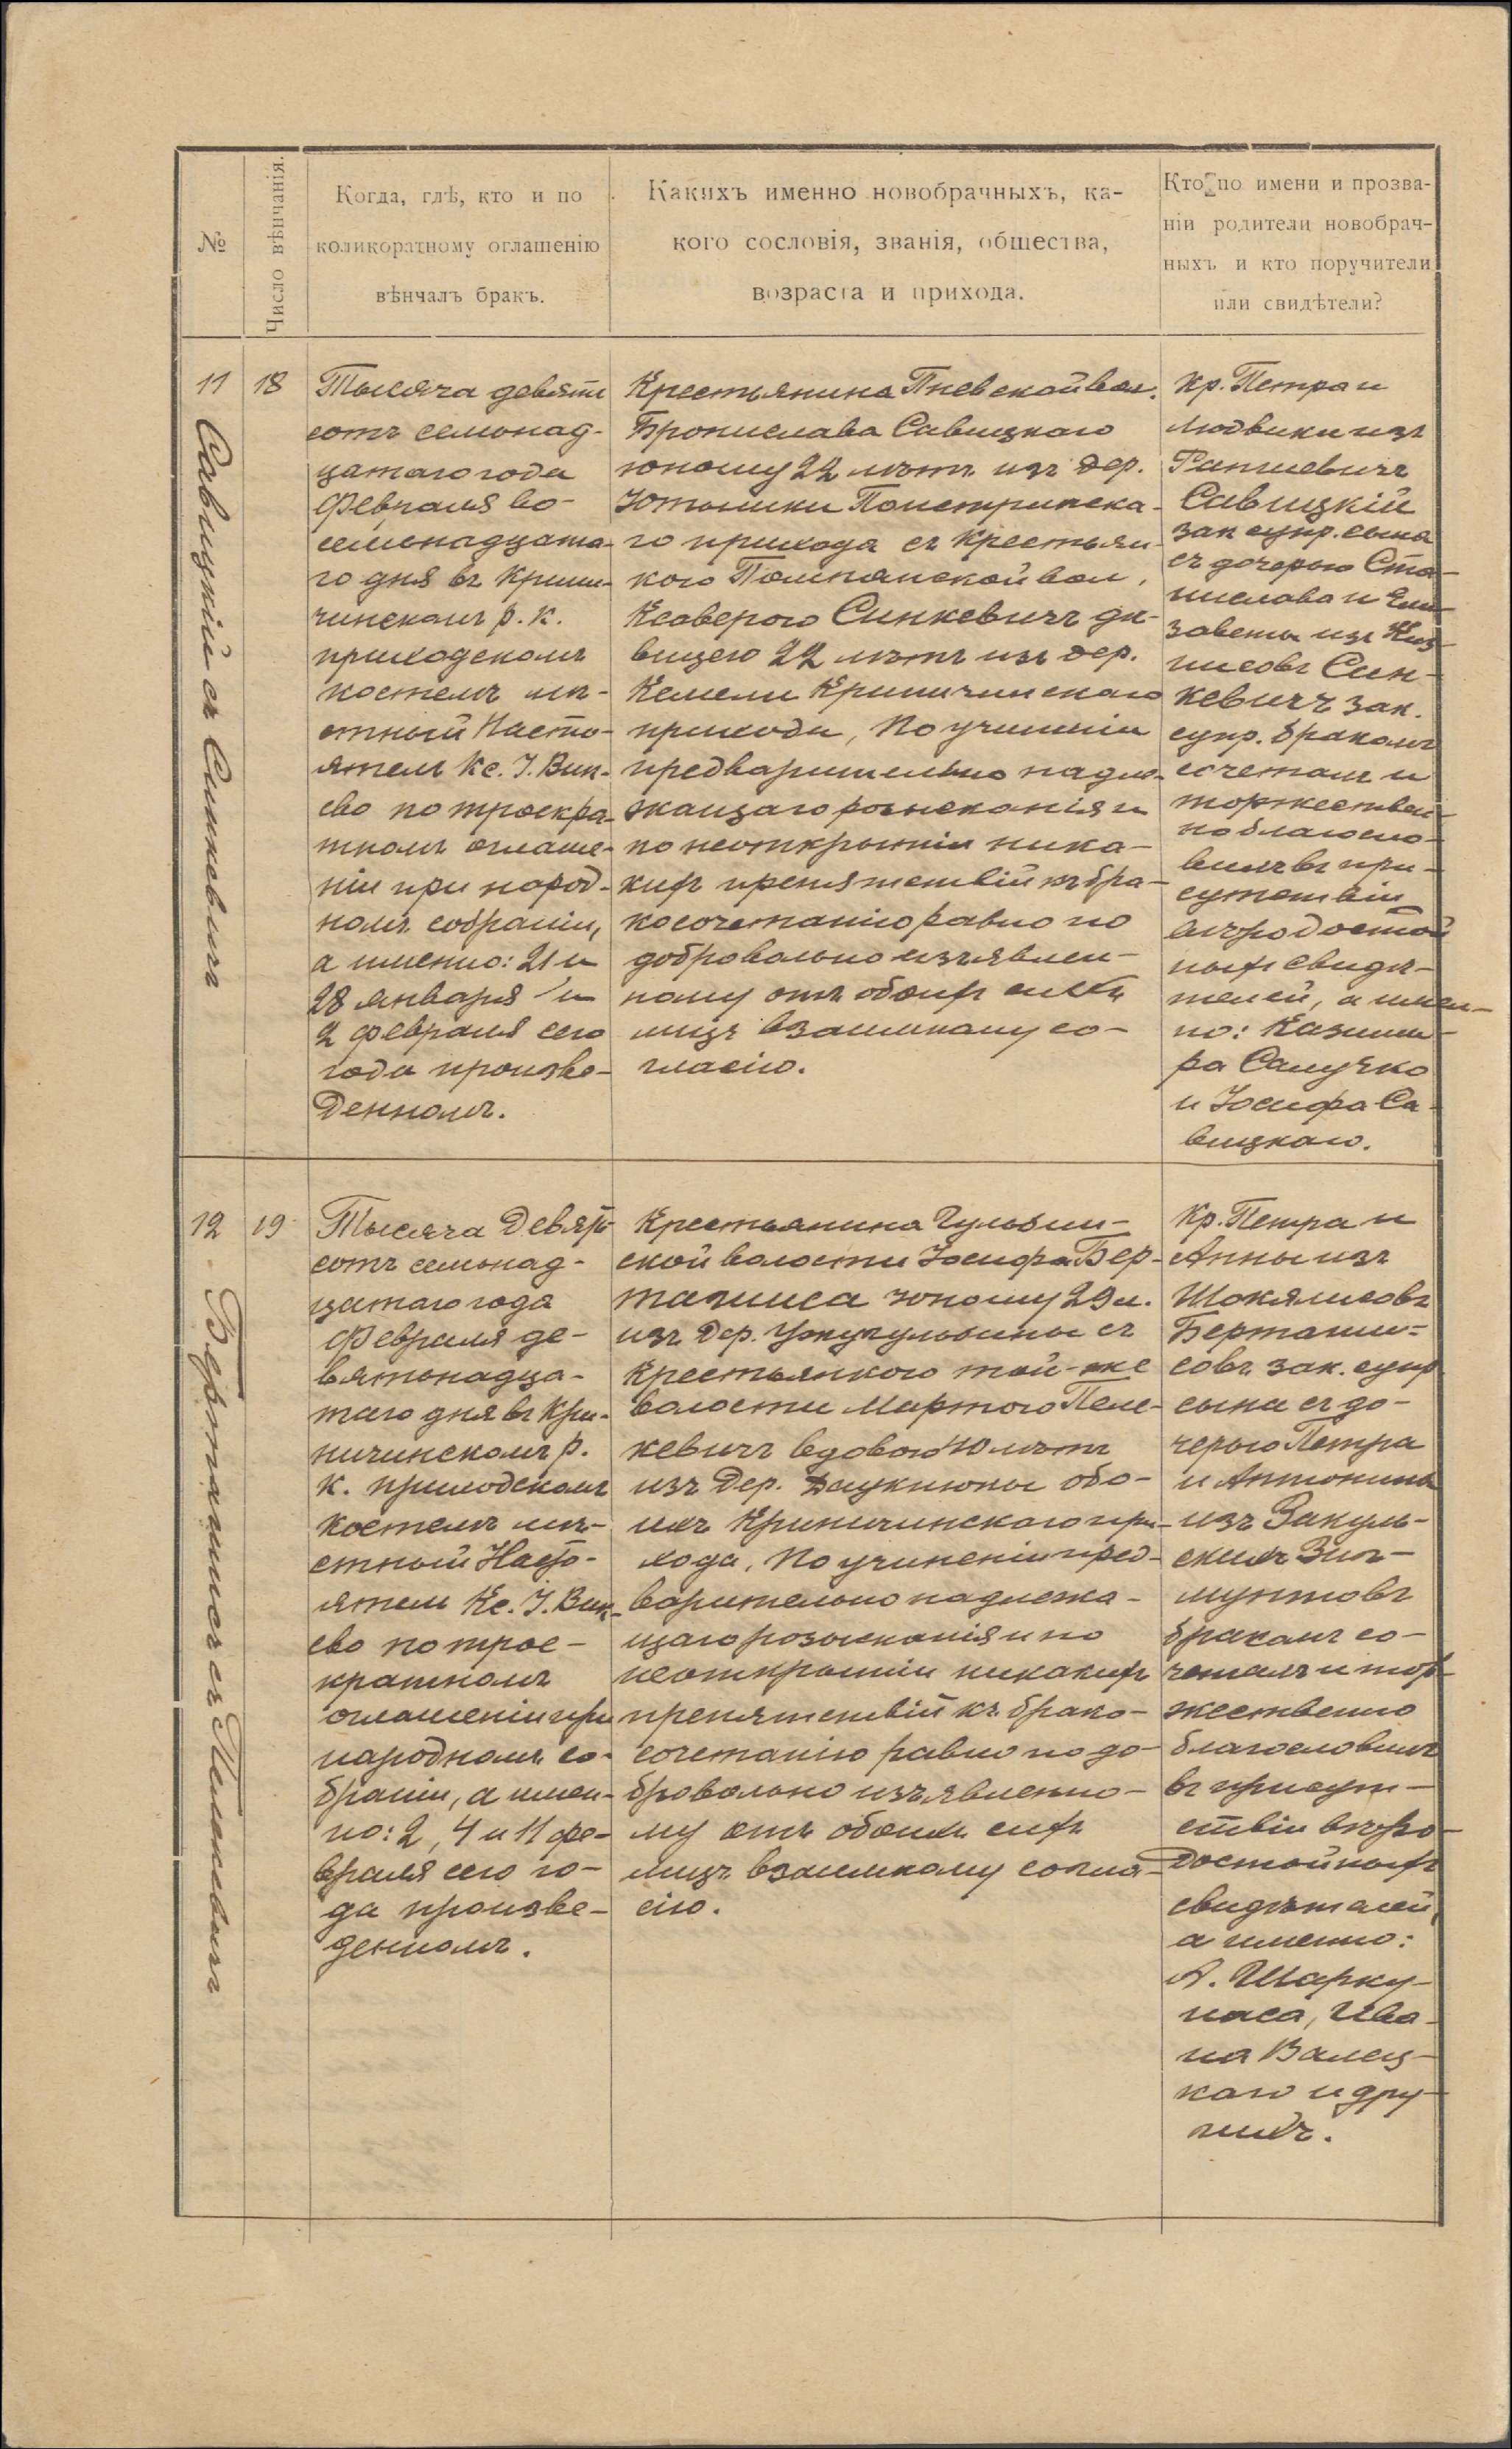 №
Число вѣнчанія.
Когда, гдѣ, кто и по
коликоратному оглашенію
вѣнчалъ бракъ.
Какихъ именно новобрачныхъ, ка-
кого сословія, званія, общества,
возраста и прихода.
Кто по имени и прозва-
ніи родители новобрач-
ныхъ и кто поручители
или свидѣтели?
11
Савицкій съ Синкевичъ
18
Тысяча девять
сотъ семнад-
цатаго года
Февраля во-
семнадцата-
го дня въ Крини-
чинскомъ р. к.
приходскомъ
костелѣ мѣ-
стный Насто-
ятель Кс. І. Вик-
ево по троекра-
тномъ оглаше-
ніи при народ-
номъ собраніи,
а именно: 21 и
28 января и
2 февраля сего
года произве-
денномъ.
Крестьянина Гневской вол.
Бронислава Савицкаго
юношу 22 лѣтъ изъ дер.
го прихода съ крестьян-
кою вол.
Ксаверою Синкевичъ дѣ-
вицею 22 лѣтъ изъ дер.
Кемели Криничинскаго
прихода, По учиненіи
предварительно надле-
жащаго розысканія и
по неоткрытіи ника-
кихъ препятствій къ бра-
косочетанію равно по
добровольно изъявлен-
ному отъ обоихъ сихъ
лицъ взаимному со-
гласію.
Кр. Петра и
Людвики изъ
Савицкій
зак. супр. сына
съ дочерью Ста-
нислава и Ели-
заветы изъ
Син-
кевичъ зак.
супр. бракомъ
сочеталъ и
торжествен-
но благосло-
вилъ въ при-
сутствіи
вѣродостой
ныхъ свидѣ-
телей, а имен-
но: Казими-
ра
и Іосифа Са-
вицкаго.
12
Берташисъ съ Пелекевичъ
19
Тысяча Девять
сотъ семнад-
цатаго года
Февраля де-
вятнадца-
таго дня въ Кри-
ничинскомъ р.
к. приходскомъ
костелѣ мѣ-
стный Насто-
ятель Кс. І. Вик-
ево по трое-
кратномъ
оглашеніи при
народномъ со-
браніи, а имен-
но: 2, 4 и 11 фе-
враля сего го-
да произве-
денномъ.
Крестьянина
ской волости Іосифа Бер-
ташиса юношу 29 л.
изъ дер. съ
крестьянкою той-же
волости Мартою Пеле-
кевичъ вдовою лѣтъ
изъ дер. обо-
ихъ Криничинскаго при-
хода, По учиненіи пред-
варительно надлежа-
щаго розысканія и по
неоткрытіи никакихъ
препятствій къ брако-
сочетанію равно по до-
бровольно изъявленно-
му отъ обоихъ сихъ
лицъ взаимному согла-
сію.
Кр. Петра и
Анны изъ
Шокялисовъ
Берташи-
совъ зак. супр
сына съ до-
черью Петра
и Антонины
изъ
бракомъ со-
четалъ и тор-
жественно
благословилъ
въ присут-
ствіи вѣро-
достойныхъ
свидѣтелей,
а именно:
А. Шарку-
наса, Ива-
на Валец-
каго и дру-
гихъ.